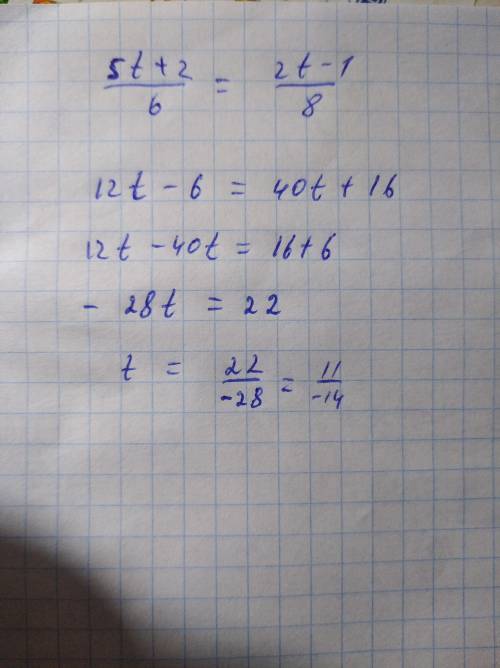 5t+2/6 = 2t-1/8
12t - 6 = 40t + 16
12t - 40t = 16+6
- 28t = 22
t = 22/-28 = 11/-14